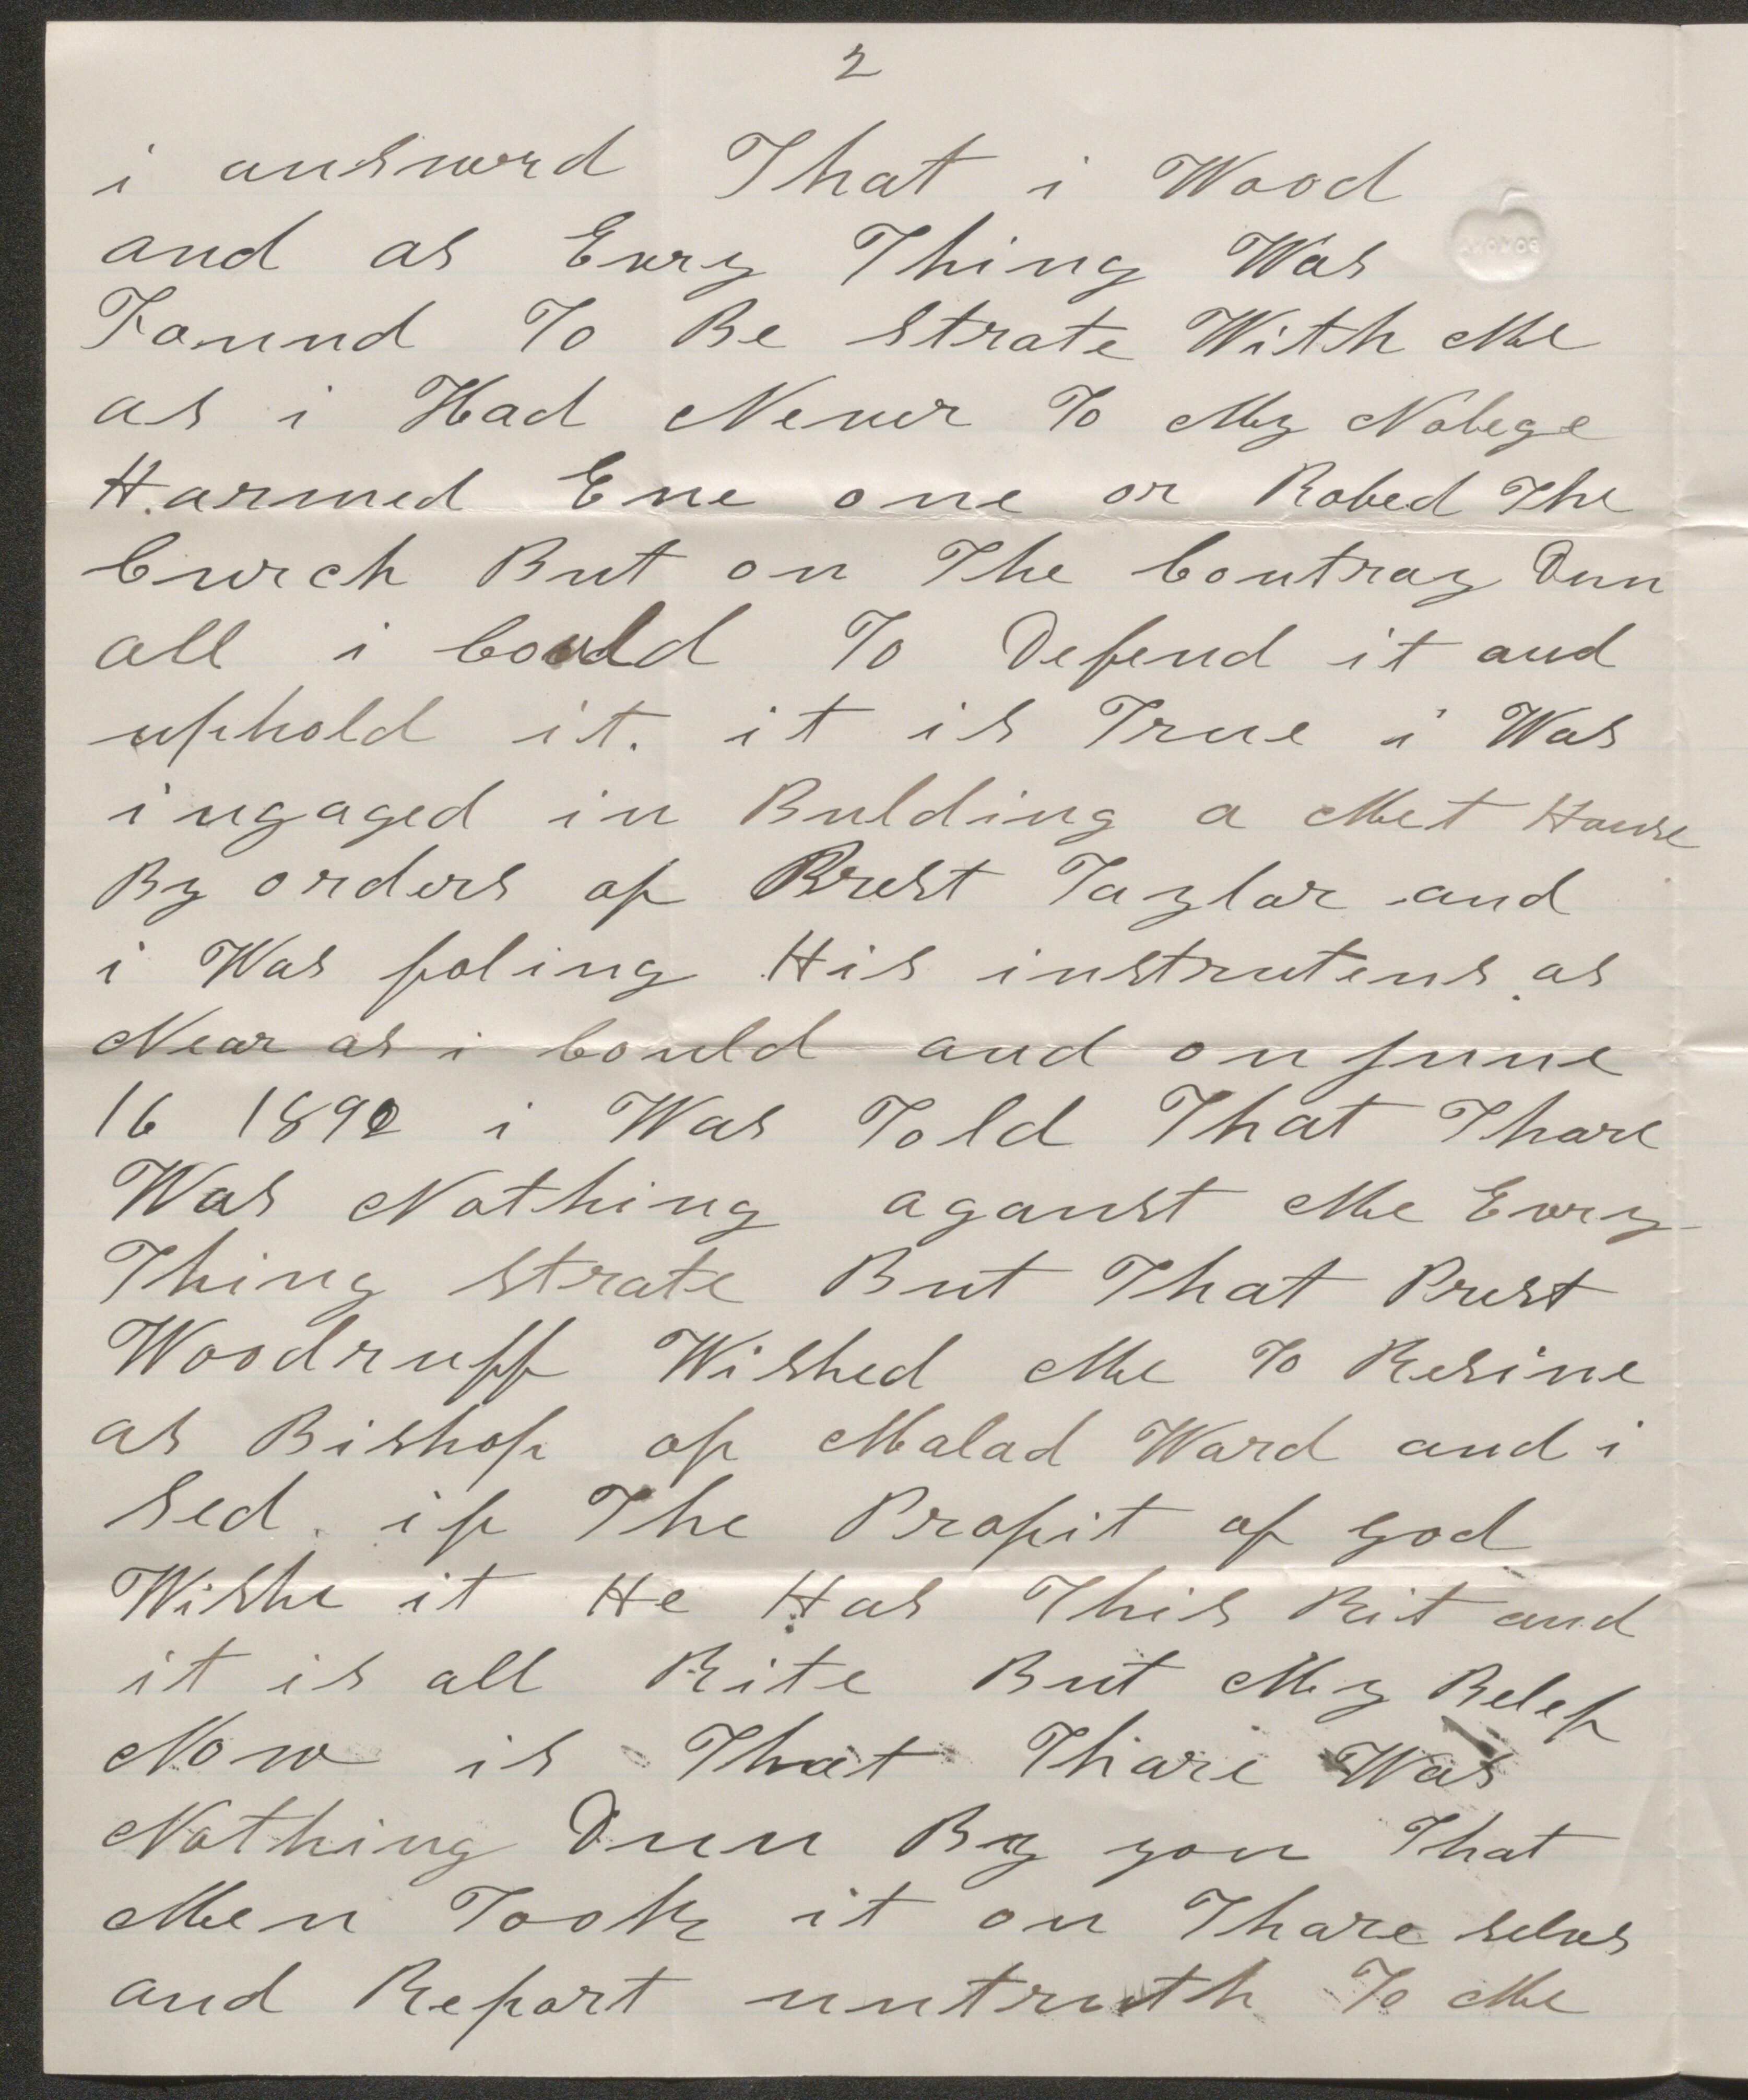 2
i answerd That i Wood
and as Evry Thing Was
Found To Be strate With Me
as i Had Never To My Nolege
Harmed Ene one or Robed The
Curch But on The Contray Dun
all i Could To Defend it and
uphold it. it is True i Was
ingaged in Bulding a Met House
By orders of Prest Taylor and
i Was foling His instrutens as
Near as i Could and on June
16 1890 i Was Told That Thare
Was Nothing aganst Me Evry
Thing strate But That Prest
Woodruff Wished Me To Resine
as Bishop of Malad Ward and i
Sed. if The Profit of god
Wishe it He Has This Rit and
it is all Rite But My Belef
Now is That Thare Was
Nothing Dun By you That
Men Took it on Thare selvs
and Report untruth To Me